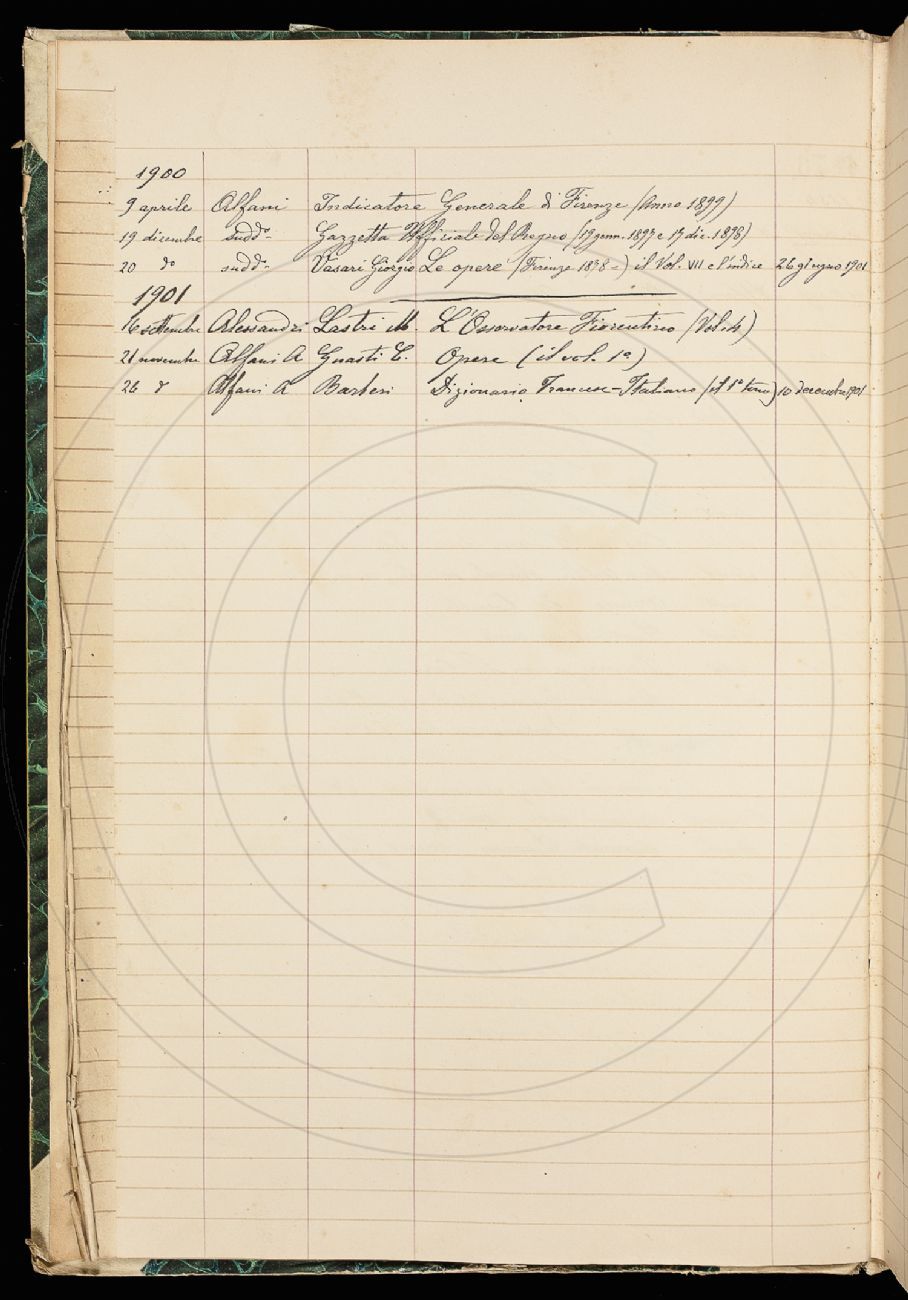 1900
9 aprile Alfani Indicatore Generale di Firenze (Anno 1899)
19 dicembre sudd.o Gazzetta Ufficiale del Regno (19 genn. 1897 e 17 dic. 1898)
20 d.o sudd.o Vasari Giorgio Le opere (Firenze 1878 -) il Vol. VII e l'indice 26 giugno 1901
1901
16 settembre Alessandri Lastri M. L'Osservatore Fiorentino (Vol. 4)
21 novembre Alfani A Guasti C. Opere (il vol. 1o)
26 d Alfani A Barberi Dizionario Francese-Italiano (il 1o tomo) 10 decembre 1901